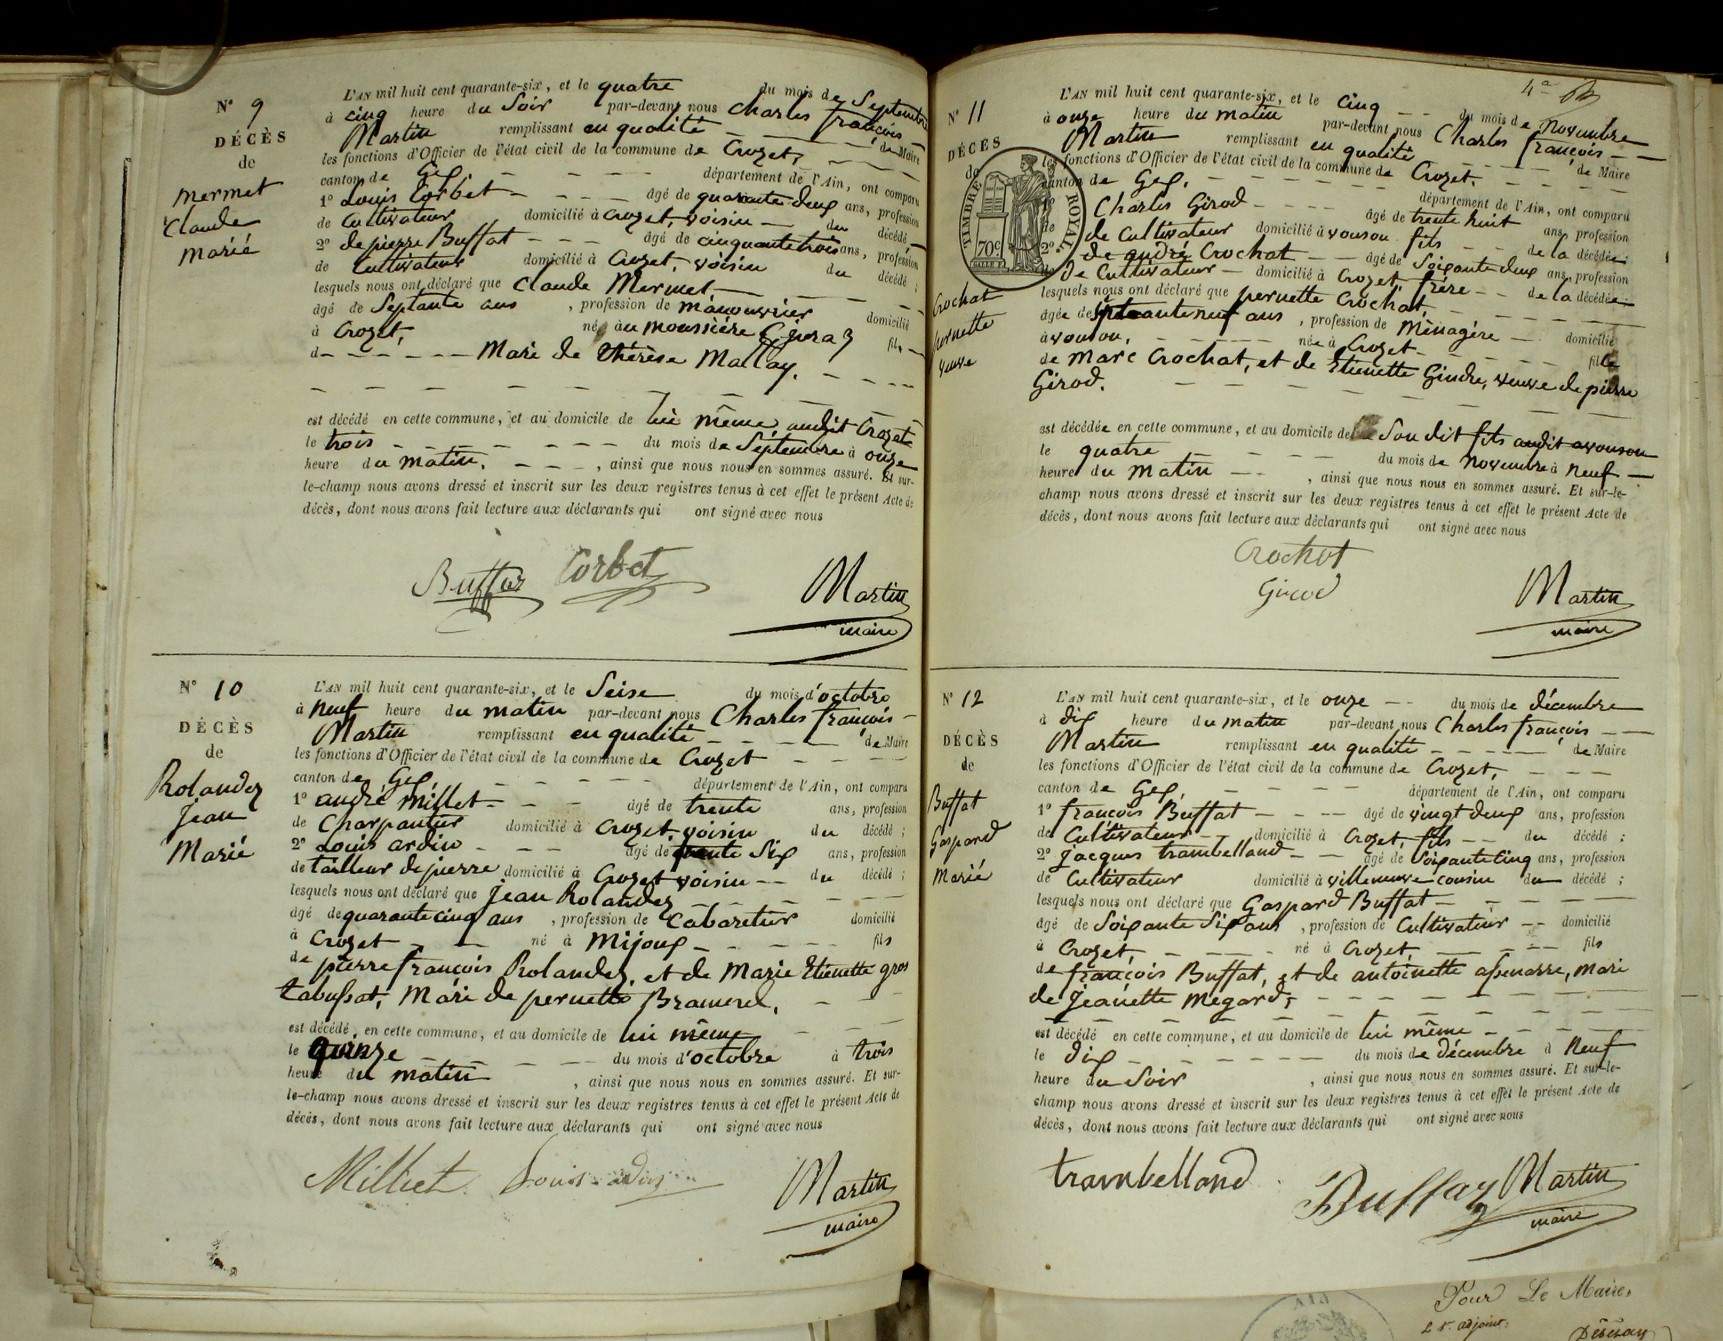 N° 9
DÉCÈS
de
Mermet
Claude
Marié
L'AN mil huit cent quarante-six, et le quatre du mois de Septembre
à cinq heure du Soir par-devant nous Charles françois
Martin remplissant en qualité de Maire
les fonctions d'Officier de l'état civil de la commune de Crozet,
canton de Gex, département de l'Ain, ont comparu
1° Louis Corbet âgé de quarante deux ans, profession
de Cultivateur domicilié à Crozet, voisin du décédé
2° de pierre Buffat âgé de cinquante trois ans, profession
de Cultivateur domicilié à Crozet, voisin du décédé ;
lesquels nous ont déclaré que Claude Mermet
âgé de Septante ans , profession de manouvrier domicilié
à Crozet, né au moussière (Jura) fils
d Mari de thérèse Mallay.
est décédé en cette commune, et au domicile de lui même audit Crozet
le trois du mois de Septembre à onze
heure du matin. , ainsi que nous nous en sommes assuré. Et sur-
le-champ nous avons dressé et inscrit sur les deux registres tenus à cet effet le présent Acte de
décès, dont nous avons fait lecture aux déclarants qui ont signé avec nous
Buffat Corbet Martin
maire
N° 10
DÉCÈS
de
Rolandez
Jean
Marié
L'AN mil huit cent quarante-six, et le Seise du mois d'octobre
à neuf heure du matin par-devant nous Charles françois
Martin remplissant en qualité de Maire
les fonctions d'Officier de l'état civil de la commune de Crozet
canton de Gex, département de l'Ain, ont comparu
1° andré millet âgé de trente ans, profession
de Charpentier domicilié à Crozet, voisin du décédé ;
2° Louis ardin âgé de trente Six ans, profession
de tailleur de pierre domicilié à Crozet voisin du décédé ;
lesquels nous ont déclaré que Jean Rolandez
âgé de quarante cinq ans , profession de Cabaretier domicilié
à Crozet né à Mijoux fils
de pierre françois Rolandez, et de Marie Etienette gros
tabussat, Mari de pernette Bramerel,
est décédé en cette commune, et au domicile de lui même
le quinze du mois d'octobre à trois
heure du matin , ainsi que nous nous en sommes assuré. Et sur-
le-champ nous avons dressé et inscrit sur les deux registres tenus à cet effet le présent Acte de
décès, dont nous avons fait lecture aux déclarants qui ont signé avec nous
Milliet Louis Martin
maire
4e
N° 11
DÉCÈS
de
Crochat
pernette
veuve
TIMBRE ROYAL
70c
L'AN mil huit cent quarante-six, et le cinq du mois de Novembre
à onze heure du matin par-devant nous Charles françois
Martin remplissant en qualité de Maire
les fonctions d'Officier de l'état civil de la commune de Crozet.
canton de Gex, département de l'Ain, ont comparu
Charles Girod âgé de trente huit ans, profession
de Cultivateur domicilié à vouson fils de la décédée ;
2° de andré Crochat âgé de Soixante deux ans, profession
de Cultivateur domicilié à Crozet, frère de la décédée
lesquels nous ont déclaré que pernette Crochat,
âgée de Septante neuf ans , profession de Ménagère domicilié
à vouson, née à Crozet fille
de Marc Crochat, et de Etienette Gindre, veuve de pierre
Girod.
est décédée en cette commune, et au domicile de Son dit fils audit avouson
le quatre du mois de Novembre à Neuf
heure du matin , ainsi que nous nous en sommes assuré. Et sur-le-
champ nous avons dressé et inscrit sur les deux registres tenus à cet effet le présent Acte de
décès, dont nous avons fait lecture aux déclarants qui ont signé avec nous
Crochat
Girod
Martin
maire
N° 12
DÉCÈS
de
Buffat
Gaspard
Marié
L'AN mil huit cent quarante-six, et le onze du mois de décembre
à dix heure du matin par-devant nous Charles françois
Martin remplissant en qualité de Maire
les fonctions d'Officier de l'état civil de la commune de Crozet,
canton de Gex, département de l'Ain, ont comparu
1° françois Buffat âgé de vingt deux ans, profession
de Cultivateur domicilié à Crozet, fils du décédé ;
2° Jacques trambelland âgé de Soixante cinq ans, profession
de Cultivateur domicilié à villeneuve cousin du décédé ;
lesquels nous ont déclaré que Gaspard Buffat
âgé de Soixante Six ans , profession de Cultivateur domicilié
à Crozet, né à Crozet, fils
de françois Buffat, et de antoinette apenarre, Mari
de Jeanette Megard,
est décédé en cette commune, et au domicile de lui même
le dix du mois de décembre à Neuf
heure du Soir , ainsi que nous nous en sommes assuré. Et sur-le-
champ nous avons dressé et inscrit sur les deux registres tenus à cet effet le présent Acte de
décès, dont nous avons fait lecture aux déclarants qui ont signé avec nous
trambelland Buffaz Martin
maire
Pour Le Maire,
adjoint